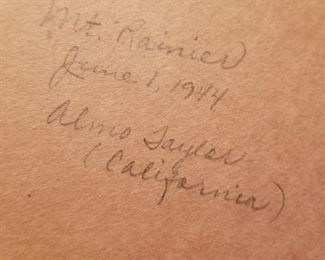 Mt. Rainier
June 1, 1944
Alma Taylor
(California)